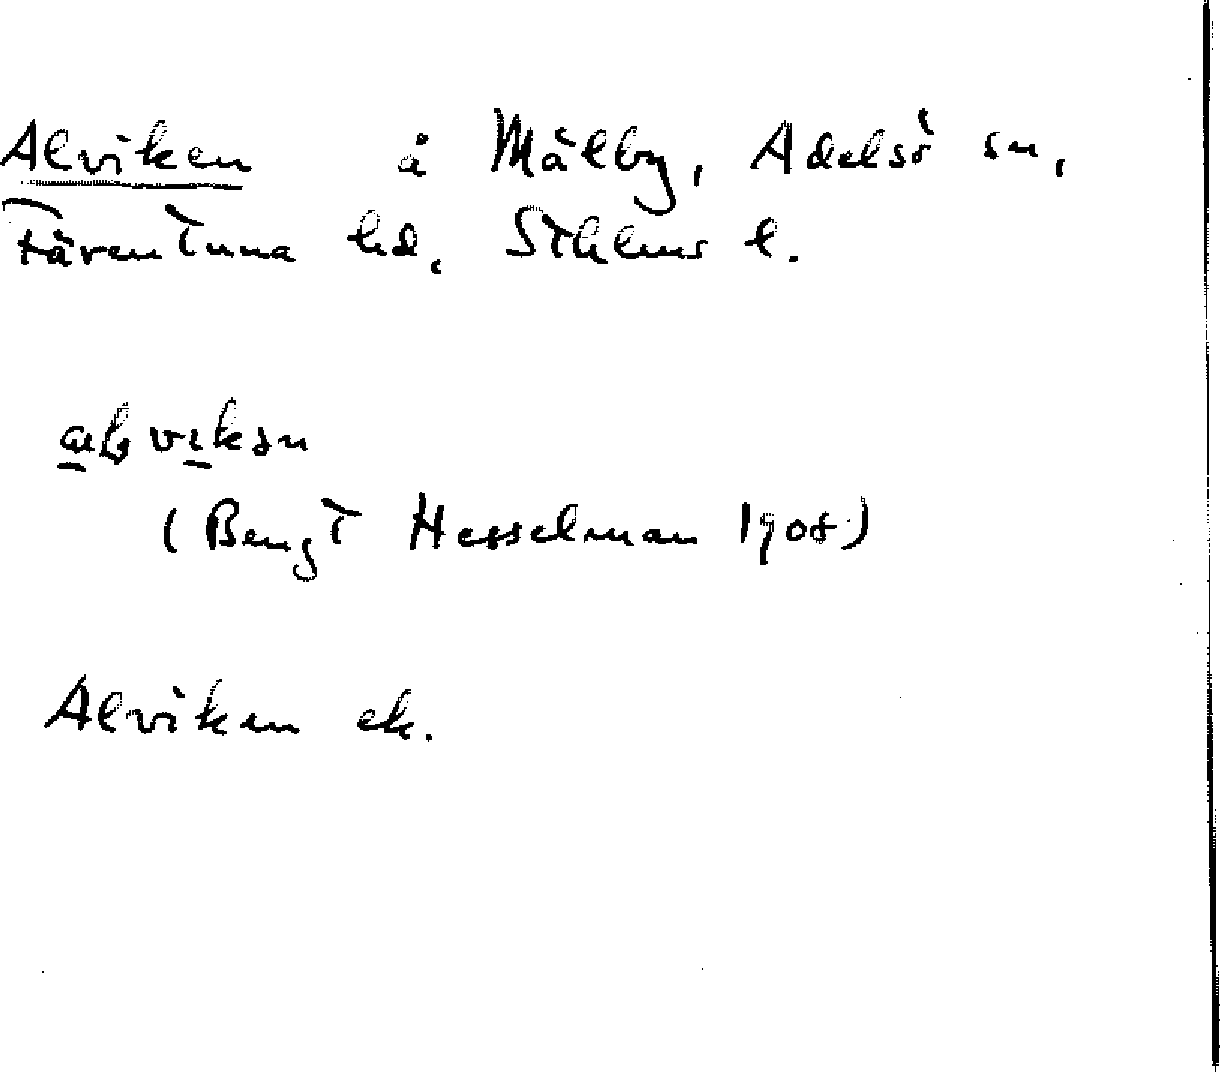 Alviken å Mälby, Adelsö sn,
Färentuna hd, Sthlms l.
(Bengt Hesselman 1908)
Alviken ek.